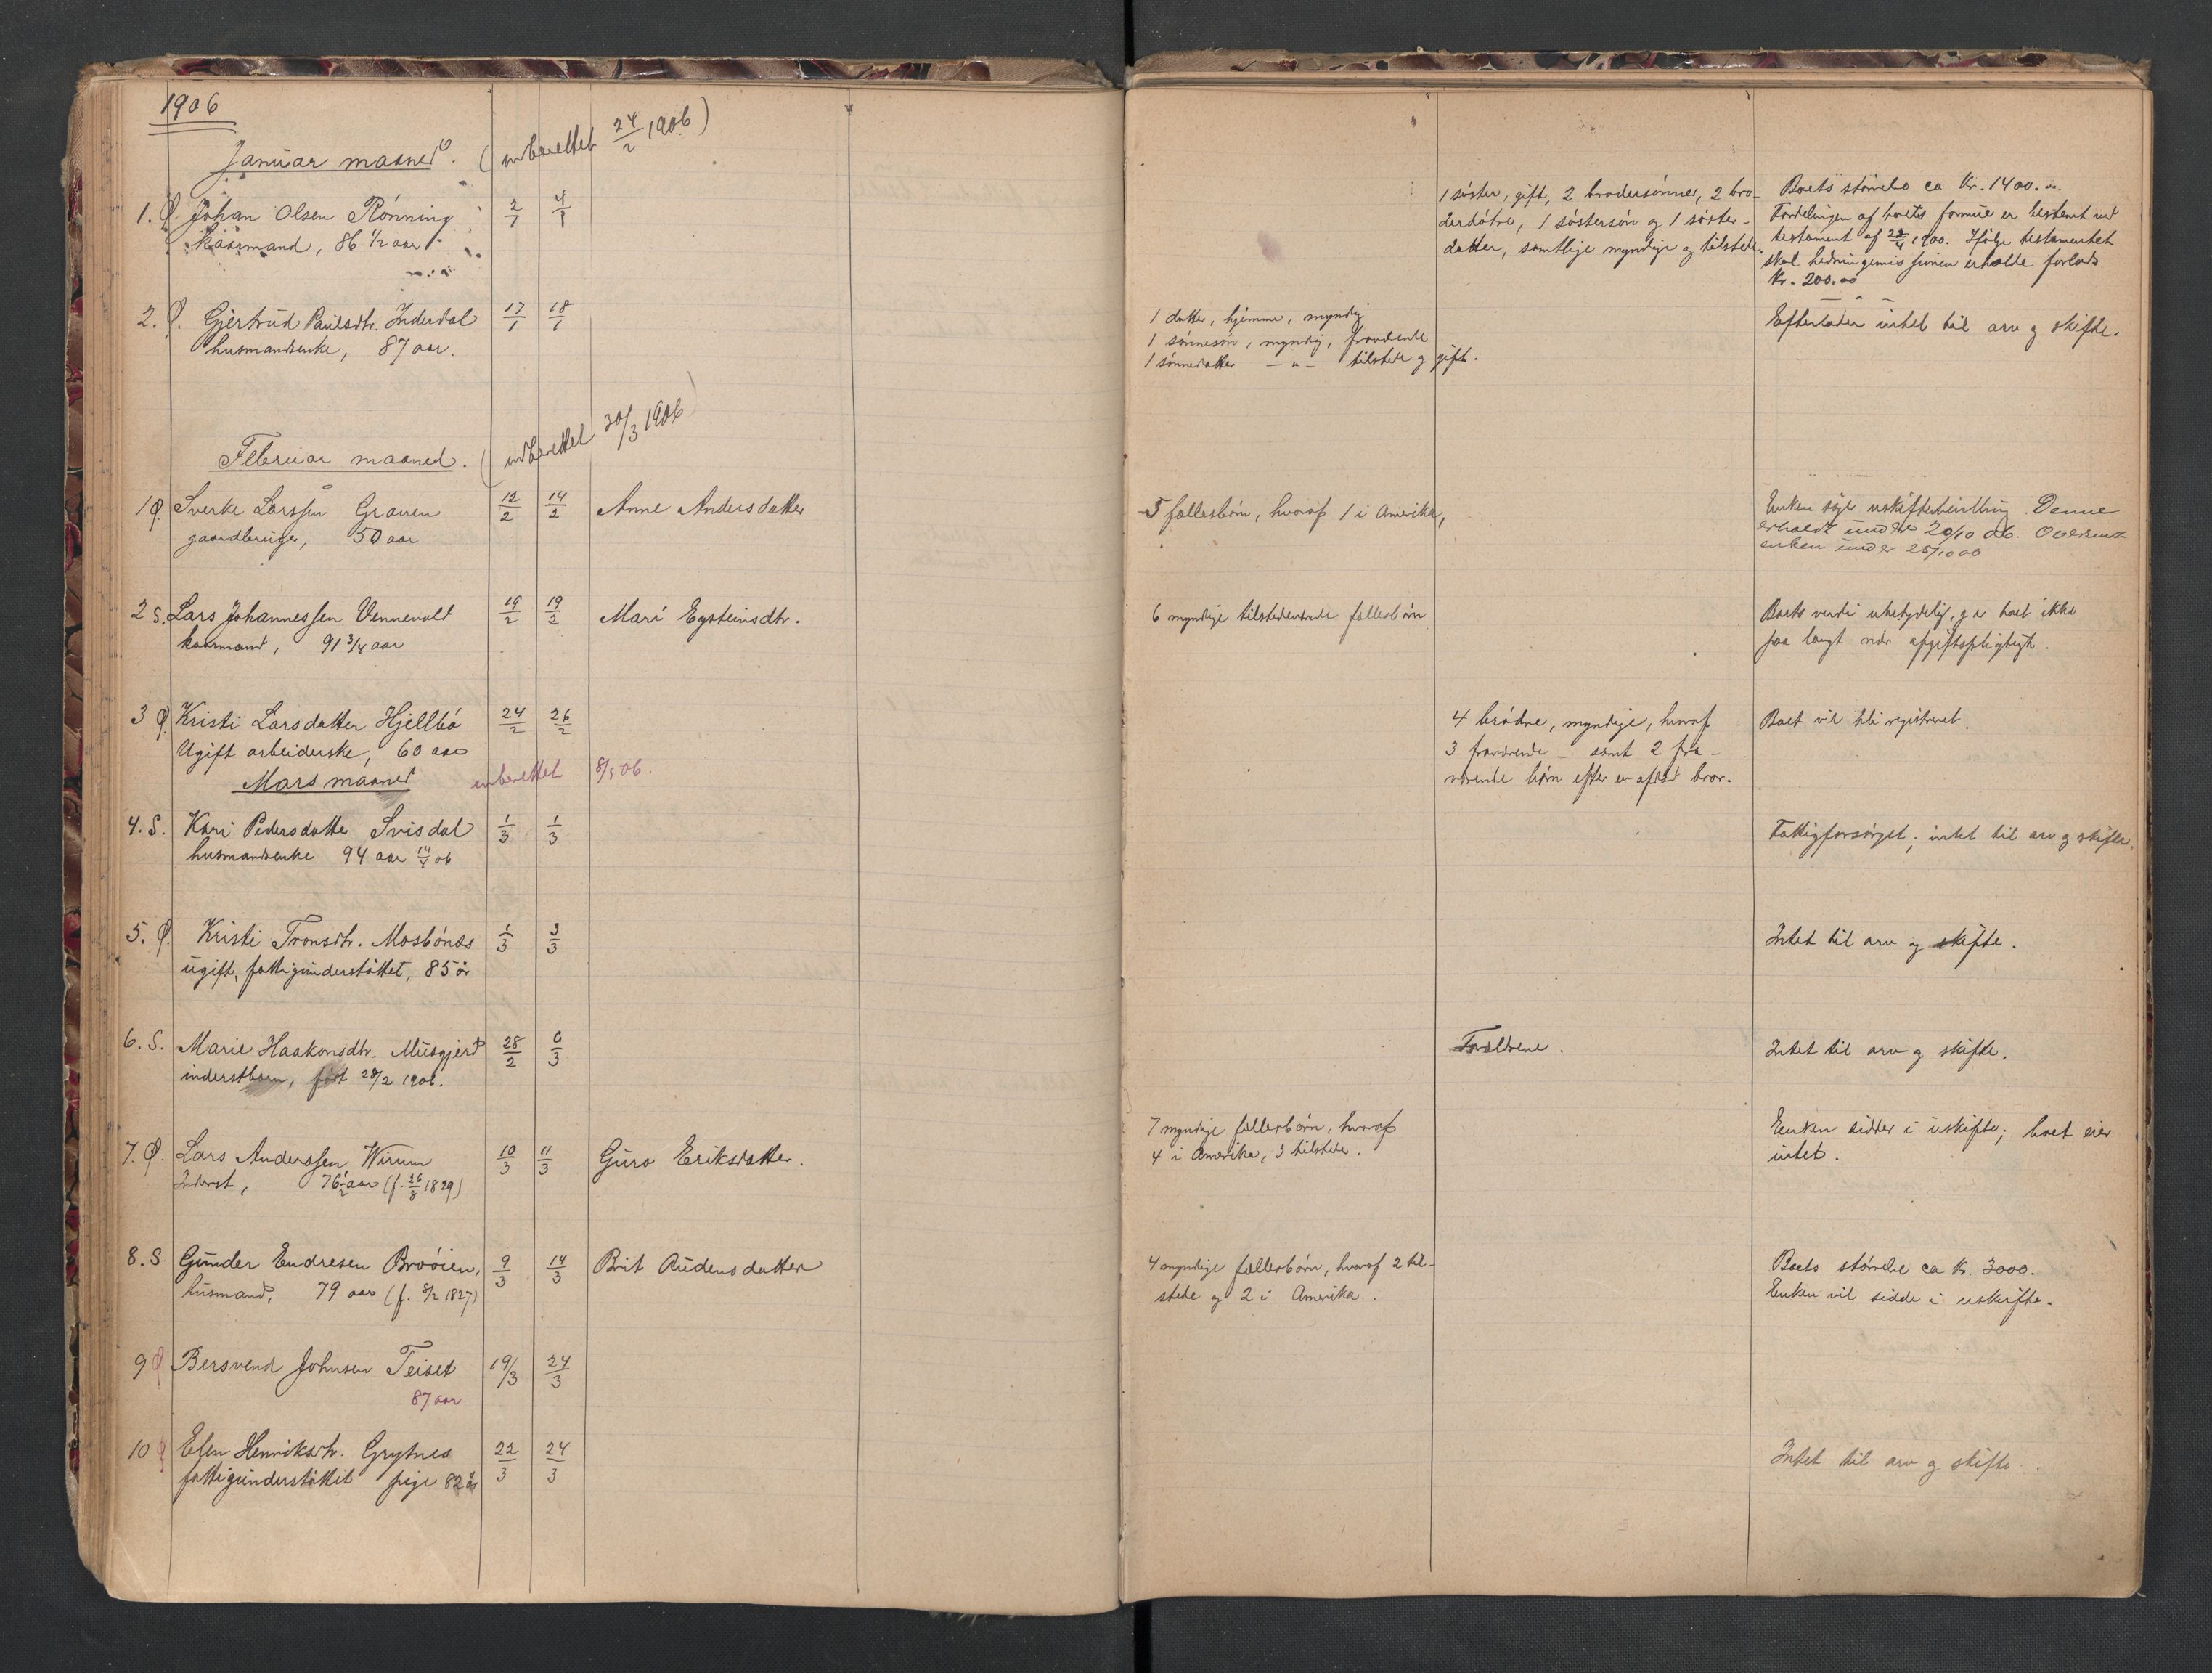 1906
Januar maaned. (indberettet 24/2 1906)
1. Ø. Johan Olsen Rönning 2/1 4/1
kaarmand, 86 1/2 aar
1 söster, gift, 2 brodersönner, 2 bro-
derdötre, 1 söstersön og 1 söster-
datter, samtlige myndige og tilstede.
Boets störrelse ca Kr. 1400.
Fordelingen af boets formue er bestemt ved
testament af 1900. Ifölge testamentet
skal hedningemissionen erholde forlods
Kr. 200.00
2. Ø. Gjertrud Paulsdtr. Inderdal 17/1 18/1
husmandsenke, 87 aar.
1 datter, hjemme, myndig
1 sönnesön, myndig, fraværende
1 sönnedatter — " — tilstede og gift.
Efterlader intet til arv og skifte.
Februar maaned. (indberettet 30/3 1906)
1 Ø. Sverke Larssen Graven 12/2 14/2 Anne Andersdatter
gaardbruger, 50 aar
5 fællesbörn, hvoraf 1 i Amerika,
Enken söger uskiftebevilling. Denne
erholdt under 20/10 06. Oversendt
enken under 25/10 06
2 S. Lars Johannessen Vennevold 19/2 19/2 Mari Eysteinsdtr.
kaarmand, 91 3/4 aar
6 myndige tilstedeværende fællesbörn
Boets verdi ubetydelig, og er boet ikke
paa langt nær afgiftspligtigt.
3 Ø. Kristi Larsdatter Hjellbö 24/2 26/2
Ugift arbeiderske, 60 aar
4 brödre, myndige, hvoraf
3 fraværende — samt 2 fra-
værende börn efter en afdöd bror.
Boet vil bli registreret.
Mars maaned indberettet 8/5 06.
4. S. Kari Pedersdatter Svisdal 1/3 1/3
husmandsenke 94 aar 14/4 06
Fattigforsörget; intet til arv og skifte.
5. Ø. Kristi Tronsdtr. Mosbönæs 1/3 3/3
ugift, fattigunderstöttet, 85 år
Intet til arv og skifte.
6. S. Marie Haakonsdtr. Musgjerd 28/2 6/3
inderstbarn, födt 28/2 1906.
Forældrene.
Intet til arv og skifte.
7. Ø. Lars Anderssen Wirum 10/3 11/3 Guro Eriksdatter.
Inderst, 76 1/2 aar (f. 26/8 1829)
7 myndige fællesbörn, hvoraf
4 i Amerika, 3 tilstede.
Enken sidder i uskifte; boet eier
intet.
8. S Gunder Endresen Broöien, 9/3 14/3 Brit Audensdatter
husmand, 79 aar (f. 8/2 1827)
4 myndige fællesbörn, hvoraf 2 til-
stede og 2 i Amerika.
Boets störrelse ca kr. 3000.
Enken vil sidde i uskifte.
9 Ø Bersvend Johnsen Teiset 19/3 24/3
87 aar
10 Ø Elen Henriksdtr. Grytnes 22/3 24/3
fattigunderstöttet pige 82 år
Intet til arv og skifte.